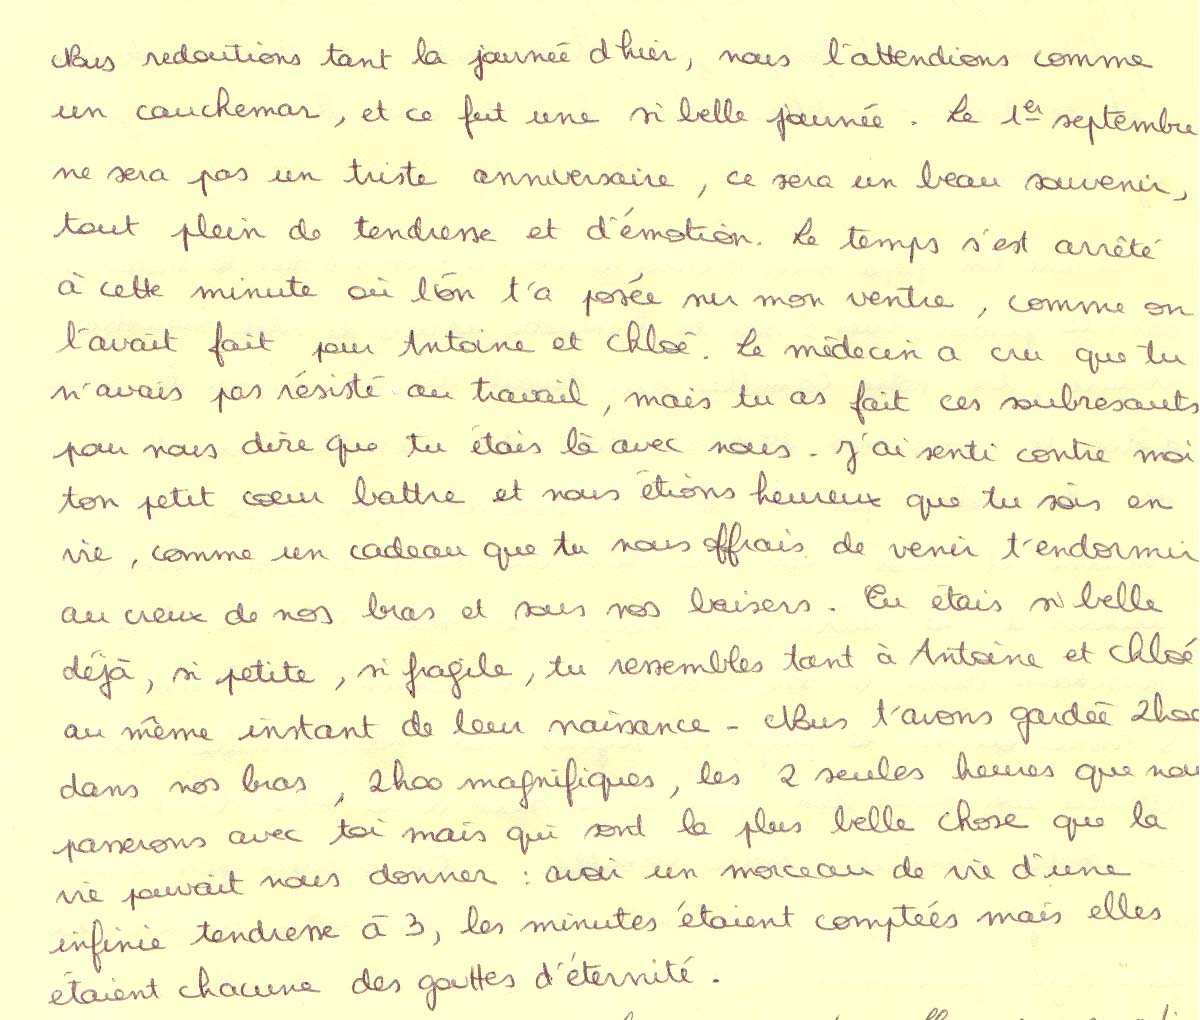 Nous redoutions tant la journée d'hier, nous l'attendions comme
un cauchemar, et ce fut une si belle journée. Le 1er septembre
ne sera pas un triste anniversaire, ce sera un beau souvenir,
tout plein de tendresse et d'émotion. Le temps s'est arrêté
à cette minute où l'on t'a posée sur mon ventre, comme on
l'avait fait pour Antoine et Chloé. Le médecin a cru que tu
n'avais pas résisté au travail, mais tu as fait ces soubresauts
pour nous dire que tu étais là avec nous. J'ai senti contre moi
ton petit coeur battre et nous étions heureux que tu sois en
vie, comme un cadeau que tu nous offrais de venir t'endormir
au creux de nos bras et sous nos baisers. Tu étais si belle
déjà, si petite, si fragile, tu ressembles tant à Antoine et Chloé
au même instant de leur naissance - Nous t'avons gardée 2h00
dans nos bras, 2h00 magnifiques, les 2 seules heures que nous
passerons avec toi mais qui sont la plus belle chose que la
vie pouvait nous donner : avoir un morceau de vie d'une
infinie tendresse à 3, les minutes étaient comptées mais elles
étaient chacune des gouttes d'éternité.